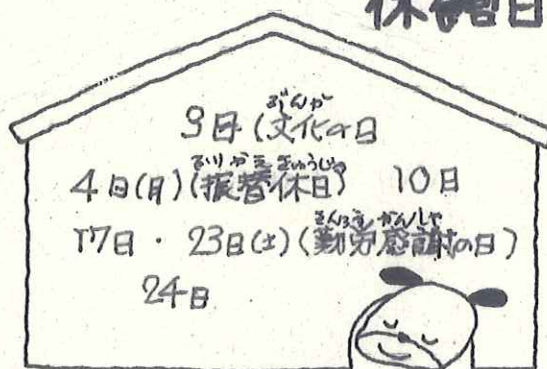 休館日
3日(文化の日
ぶんか
4日(月)(振替休日) 10日
ふりかえきゅうじつ
17日・23日(土)(勤労感謝の日)
きんろうかんしゃ
24日